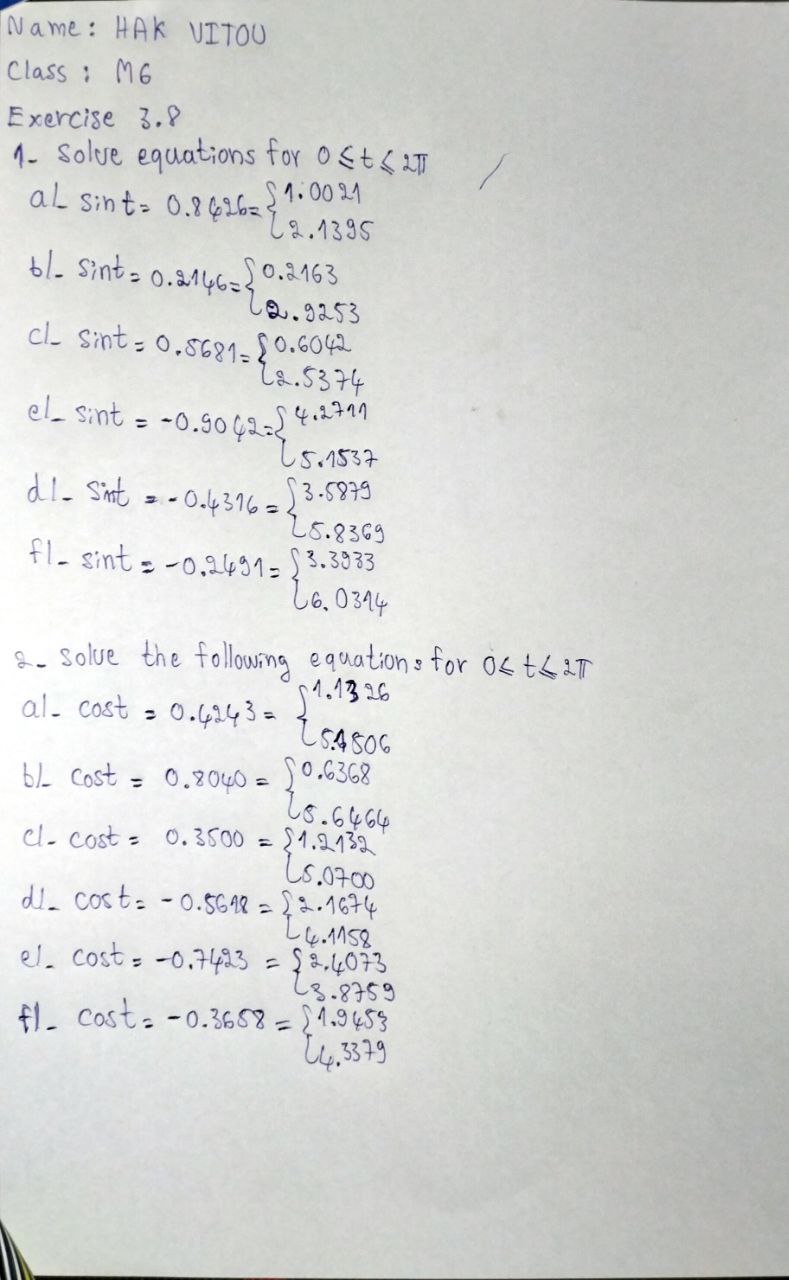 Name: HAK VITOU
Class: M6
Exercise 3.8
1- Solve equations for 0 ≤ t ≤ 2π
a/- sint = 0.8426 = { 1.0021
2.1395
b/- sint = 0.2146 = { 0.2163
2.9253
c/- sint = 0.5681 = { 0.6042
2.5374
e/- sint = -0.9042 = { 4.2711
5.1537
d/- sint = -0.4316 = { 3.5879
5.8369
f/- sint = -0.2491 = { 3.3933
6.0314
2- Solve the following equations for 0 ≤ t ≤ 2π
a/- cost = 0.4243 = { 1.1326
5.1506
b/- cost = 0.8040 = { 0.6368
5.6464
c/- cost = 0.3500 = { 1.2132
5.0700
d/- cost = -0.5618 = { 2.1674
4.1158
e/- cost = -0.7423 = { 2.4073
3.8759
f/- cost = -0.3658 = { 1.9453
4.3379